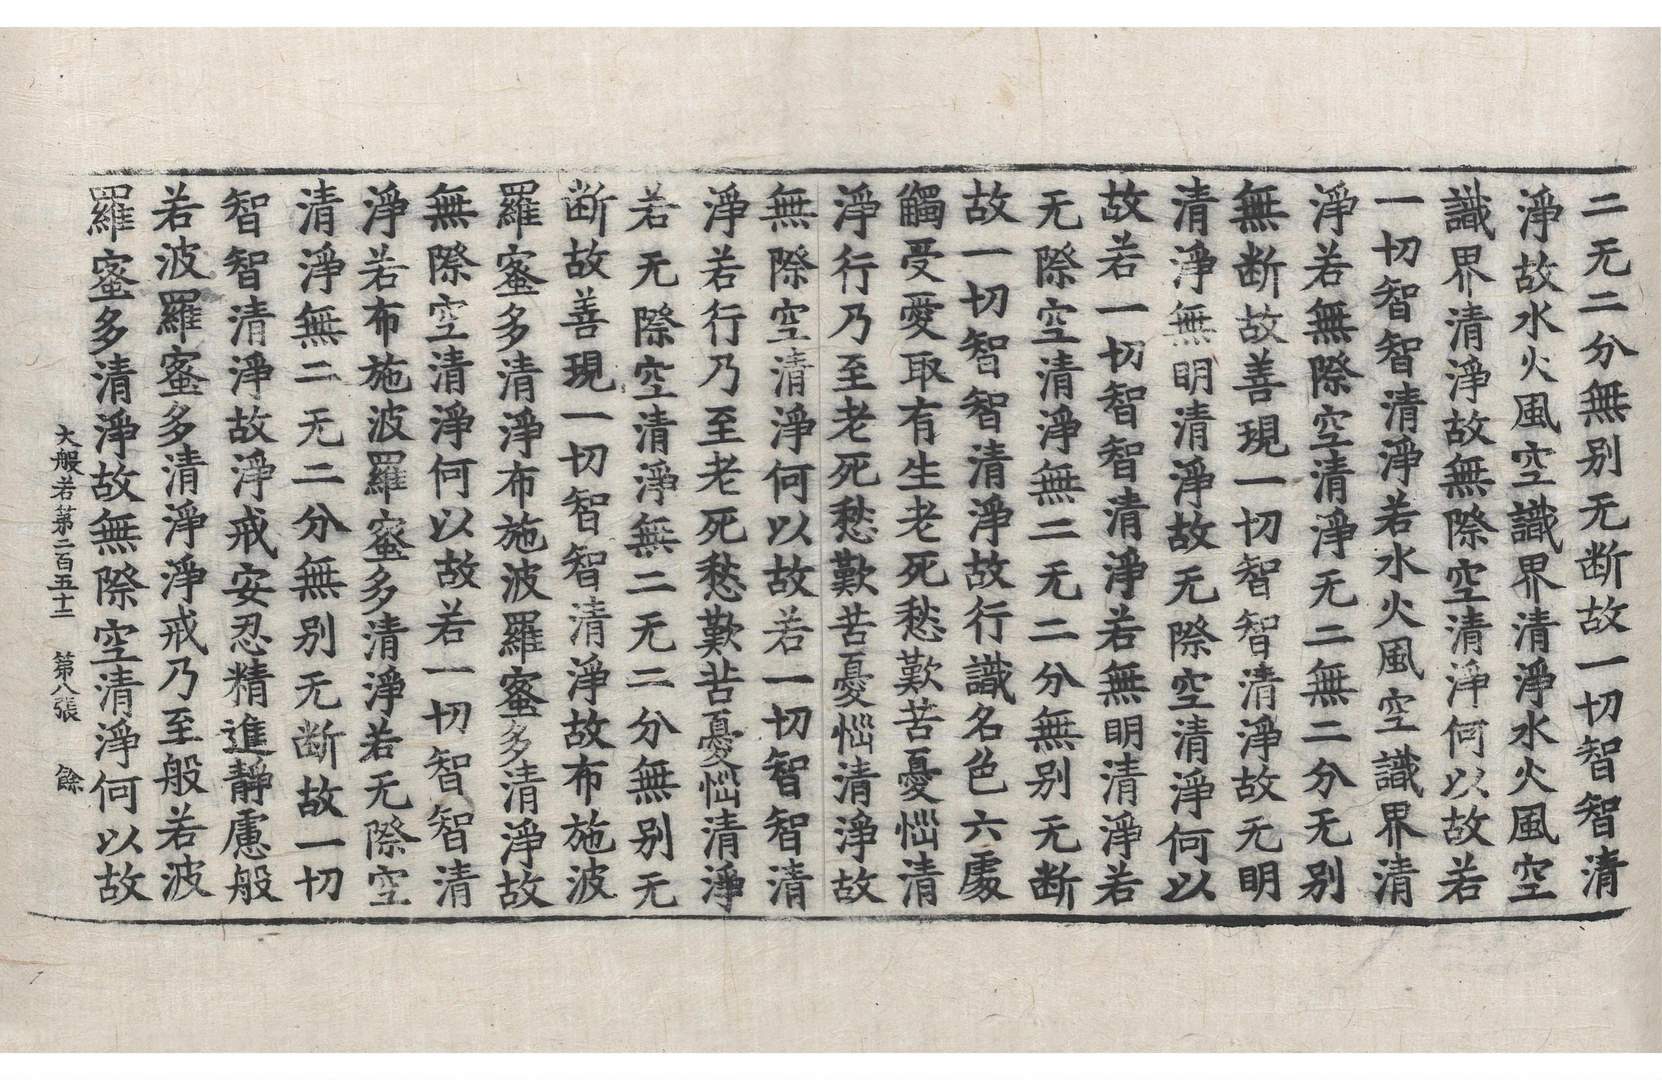 二无二分無别无断故一切智智清
淨故水火風空識界清淨水火風空
識界清淨故無際空清淨何以故若
一切智智清淨若水火風空識界清
淨若無際空清淨无二無二分无别
無断故善現一切智智清淨故无明
清淨無明清淨故无際空清淨何以
故若一切智智清淨若無明清淨若
无際空清淨無二无二分無别无断
故一切智智清淨故行識名色六處
觸受愛取有生老死愁歎苦憂惱清
淨行乃至老死愁歎苦憂惱清淨故
無際空清淨何以故若一切智智清
淨若行乃至老死愁歎苦憂惱清淨
若无際空清淨無二无二分無别无
断故善現一切智智清淨故布施波
羅蜜多清淨布施波羅蜜多清淨故
無際空清淨何以故若一切智智清
淨若布施波羅蜜多清淨若无際空
清淨無二无二分無别无断故一切
智智清淨故淨戒安忍精進靜慮般
若波羅蜜多清淨淨戒乃至般若波
羅蜜多清淨故無際空清淨何以故
大般若第二百五十二 第八張 餘